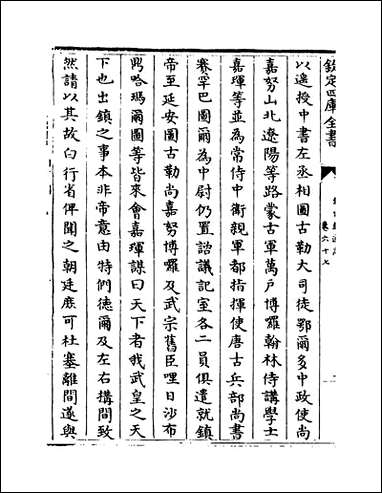 欽定四庫全書
卷六十七
以遙授中書左丞相圖古勒大司徒鄂爾多中政使尚
嘉努山北遼陽等路蒙古軍萬户博囉翰林侍講學士
嘉琿等並為常侍中衛親軍都指揮使唐古兵部尚書
賽罕巴圖爾為中尉仍置諮議記室各二員俱遣就鎮
帝至延安圖古勒尚嘉努博囉及武宗舊臣哩日沙布
鼎哈瑪爾圖等皆來會嘉琿謀曰天下者我武皇之天
下也出鎮之事本非帝意由特們德爾及左右構間致
然請以其故白行省俾聞之朝廷庶可杜塞離間遂與